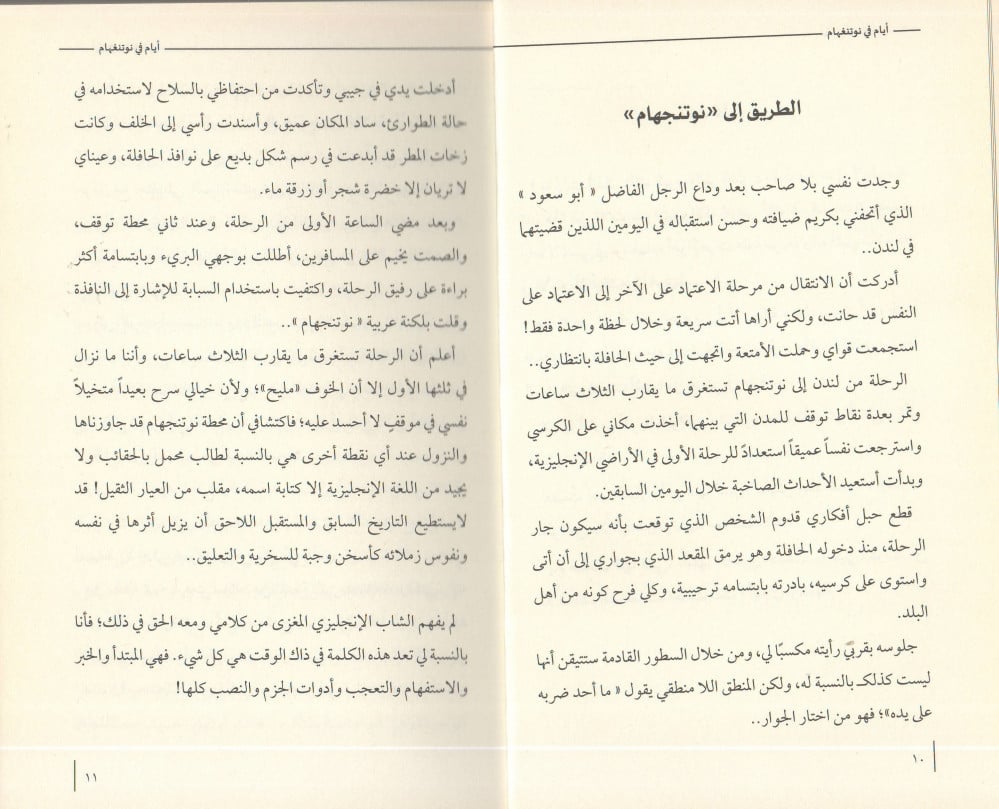 أيام في نوتنغهام
الطريق إلى «نوتنجهام»
وجدت نفسي بلا صاحب بعد وداع الرجل الفاضل « أبو سعود »
الذي أتحفني بكريم ضيافته وحسن استقباله في اليومين اللذين قضيتهما
في لندن..
أدركت أن الانتقال من مرحلة الاعتماد على الآخر إلى الاعتماد على
النفس قد حانت، ولكني أراها أتت سريعة وخلال لحظة واحدة فقط!
استجمعت قواي وحملت الأمتعة واتجهت إلى حيث الحافلة بانتظاري..
الرحلة من لندن إلى نوتنجهام تستغرق ما يقارب الثلاث ساعات
وتمر بعدة نقاط توقف للمدن التي بينهما، أخذت مكاني على الكرسي
واسترجعت نفساً عميقاً استعدادً للرحلة الأولى في الأراضي الإنجليزية،
وبدأت أستعيد الأحداث الصاخبة خلال اليومين السابقين.
قطع حبل أفكاري قدوم الشخص الذي توقعت بأنه سيكون جار
الرحلة، منذ دخوله الحافلة وهو يرمق المقعد الذي بجواري إلى أن أتى
واستوى على كرسيه، بادرته بابتسامه ترحيبية، وكلي فرح كونه من أهل
البلد.
جلوسه بقربي رأيته مكسبًا لي، ومن خلال السطور القادمة ستتيقن أنها
ليست كذلك بالنسبة له، ولكن المنطق اللا منطقي يقول « ما أحد ضربه
على يده»؛ فهو من اختار الجوار..
١٠
أيام في نوتنغهام
أدخلت يدي في جيبي وتأكدت من احتفاظي بالسلاح لاستخدامه في
حالة الطوارئ، ساد المكان عميق، وأسندت رأسي إلى الخلف وكانت
زخات المطر قد أبدعت في رسم شكل بديع على نوافذ الحافلة، وعيناي
لا تريان إلا خضرة شجر أو زرقة ماء.
وبعد مضي الساعة الأولى من الرحلة، وعند ثاني محطة توقف،
والصمت يخيم على المسافرين، أطللت بوجهي البريء وبابتسامة أكثر
براءة على رفيق الرحلة، واكتفيت باستخدام السبابة للإشارة إلى النافذة
وقلت بلكنة عربية « نوتنجهام »..
أعلم أن الرحلة تستغرق ما يقارب الثلاث ساعات، وأننا ما نزال
في ثلثها الأول إلا أن الخوف «مليح»؛ ولأن خيالي سرح بعيداً متخيلاً
نفسي في موقفٍ لا أحسد عليه؛ فاكتشافي أن محطة نوتنجهام قد جاوزناها
والنزول عند أي نقطة أخرى هي بالنسبة لطالب محمل بالحقائب ولا
يجيد من اللغة الإنجليزية إلا كتابة اسمه، مقلب من العيار الثقيل! قد
لايستطيع التاريخ السابق والمستقبل اللاحق أن يزيل أثرها في نفسه
ونفوس زملائه كأسخن وجبة للسخرية والتعليق..
لم يفهم الشاب الإنجليزي المغزى من كلامي ومعه الحق في ذلك؛ فأنا
بالنسبة لي تعد هذه الكلمة في ذاك الوقت هي كل شيء. فهي المبتدأ والخبر
والاستفهام والتعجب وأدوات الجزم والنصب كلها!
١١